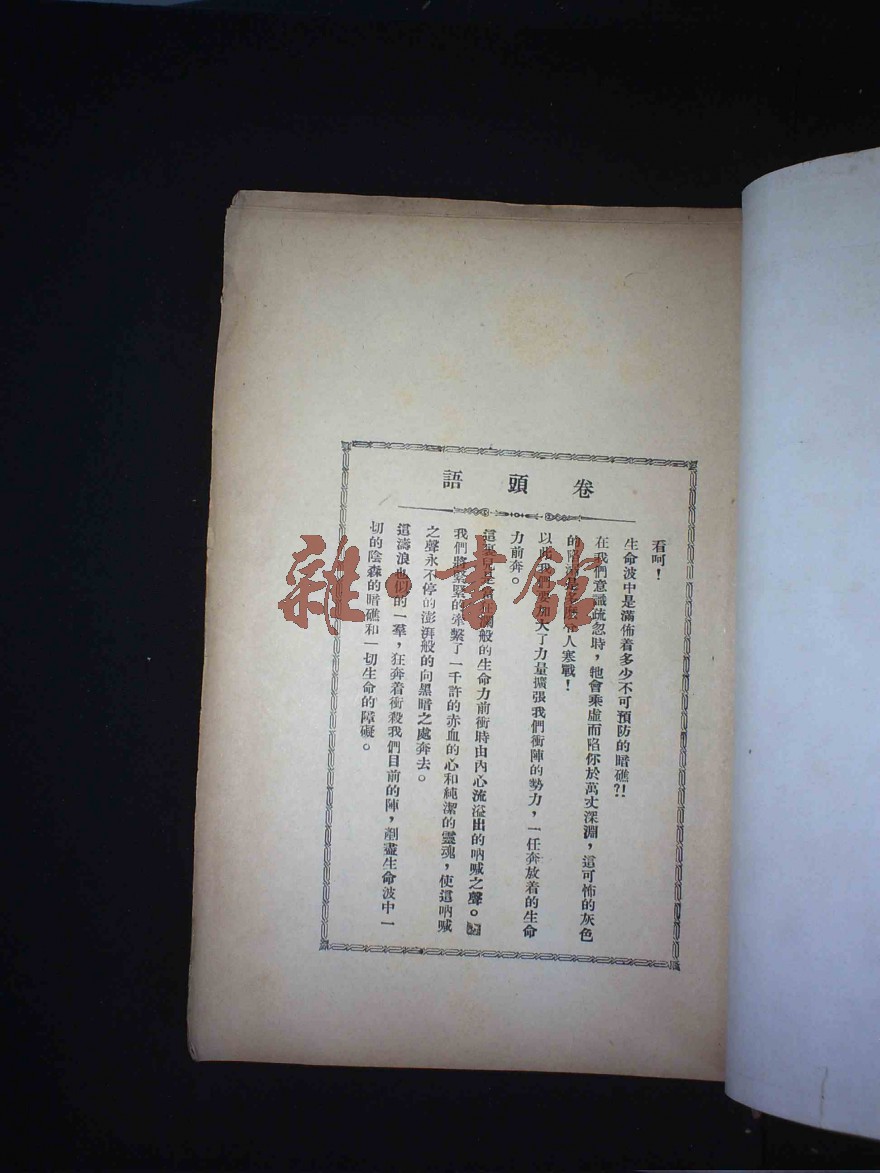 卷頭語
看呵！
生命波中是滿佈着多少不可預防的暗礁?!
在我們意識疏忽時，牠會乘虛而陷你於萬丈深淵，這可怖的灰色
的 是 人寒戰！
以此我們要加大了力量擴張我們衝陣的勢力，一任奔放着的生命
力前奔。
這裏 是 般的生命力前衝時由內心流溢出的吶喊之聲。
我們將緊緊的牽繫了一千許的赤血的心和純潔的靈魂，使這吶喊
之聲永不停的澎湃般的向黑暗之處奔去。
這濤浪也似的一羣，狂奔着衝殺我們目前的陣，剷盡生命波中一
切的陰森的暗礁和一切生命的障礙。
雜·書館